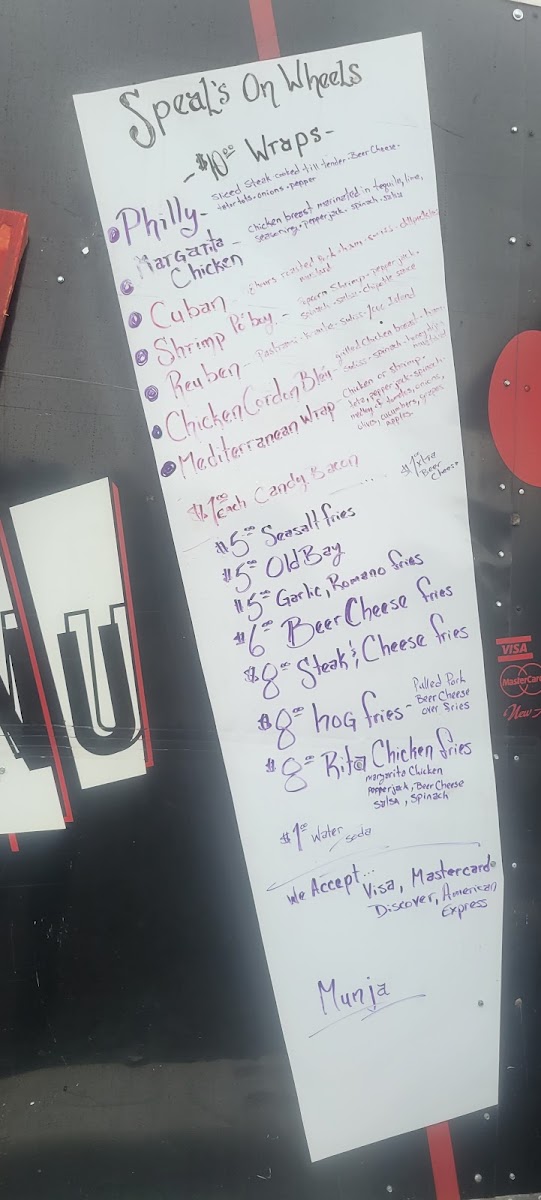 Speal's On Wheels
-$10.00 Wraps-
Philly- Sliced Steak cooked till tender - Beer Cheese -
tator tots - onions - pepper
Margarita Chicken - Chicken breast marinated in tequila, lime,
seasonings - pepper jack - spinach - salsa
Cuban - hours roasted Pork - ham - swiss - dill pickle
mustard
Shrimp Po'boy - Popcorn Shrimp - pepper jack -
spinach - salsa - chipotle sauce
Reuben - Pastrami - kraut - swiss - 1000 Island
Chicken Cordon Bleu - grilled chicken breast - ham -
swiss - spinach - honey dijon
mustard
Mediterranean Wrap - Chicken or shrimp -
feta, pepper jack - spinach -
medley of tomatoes, onions,
olives, cucumbers, grapes
apples
$1.00 each Candy Bacon
$1 xtra
Beer
Cheese
$5.00 Seasalt fries
$5.00 Old Bay
$5.00 Garlic, Romano fries
$6.00 Beer Cheese fries
$8.00 Steak & Cheese fries
$8.00 hog fries - Pulled Pork
Beer Cheese
over fries
$8.00 Rita Chicken fries
margarita Chicken
pepperjack, Beer Cheese
salsa, spinach
$1.00 water
soda
We Accept... Visa, Mastercard
Discover, American
Express
Munja
NU
VISA
MasterCard